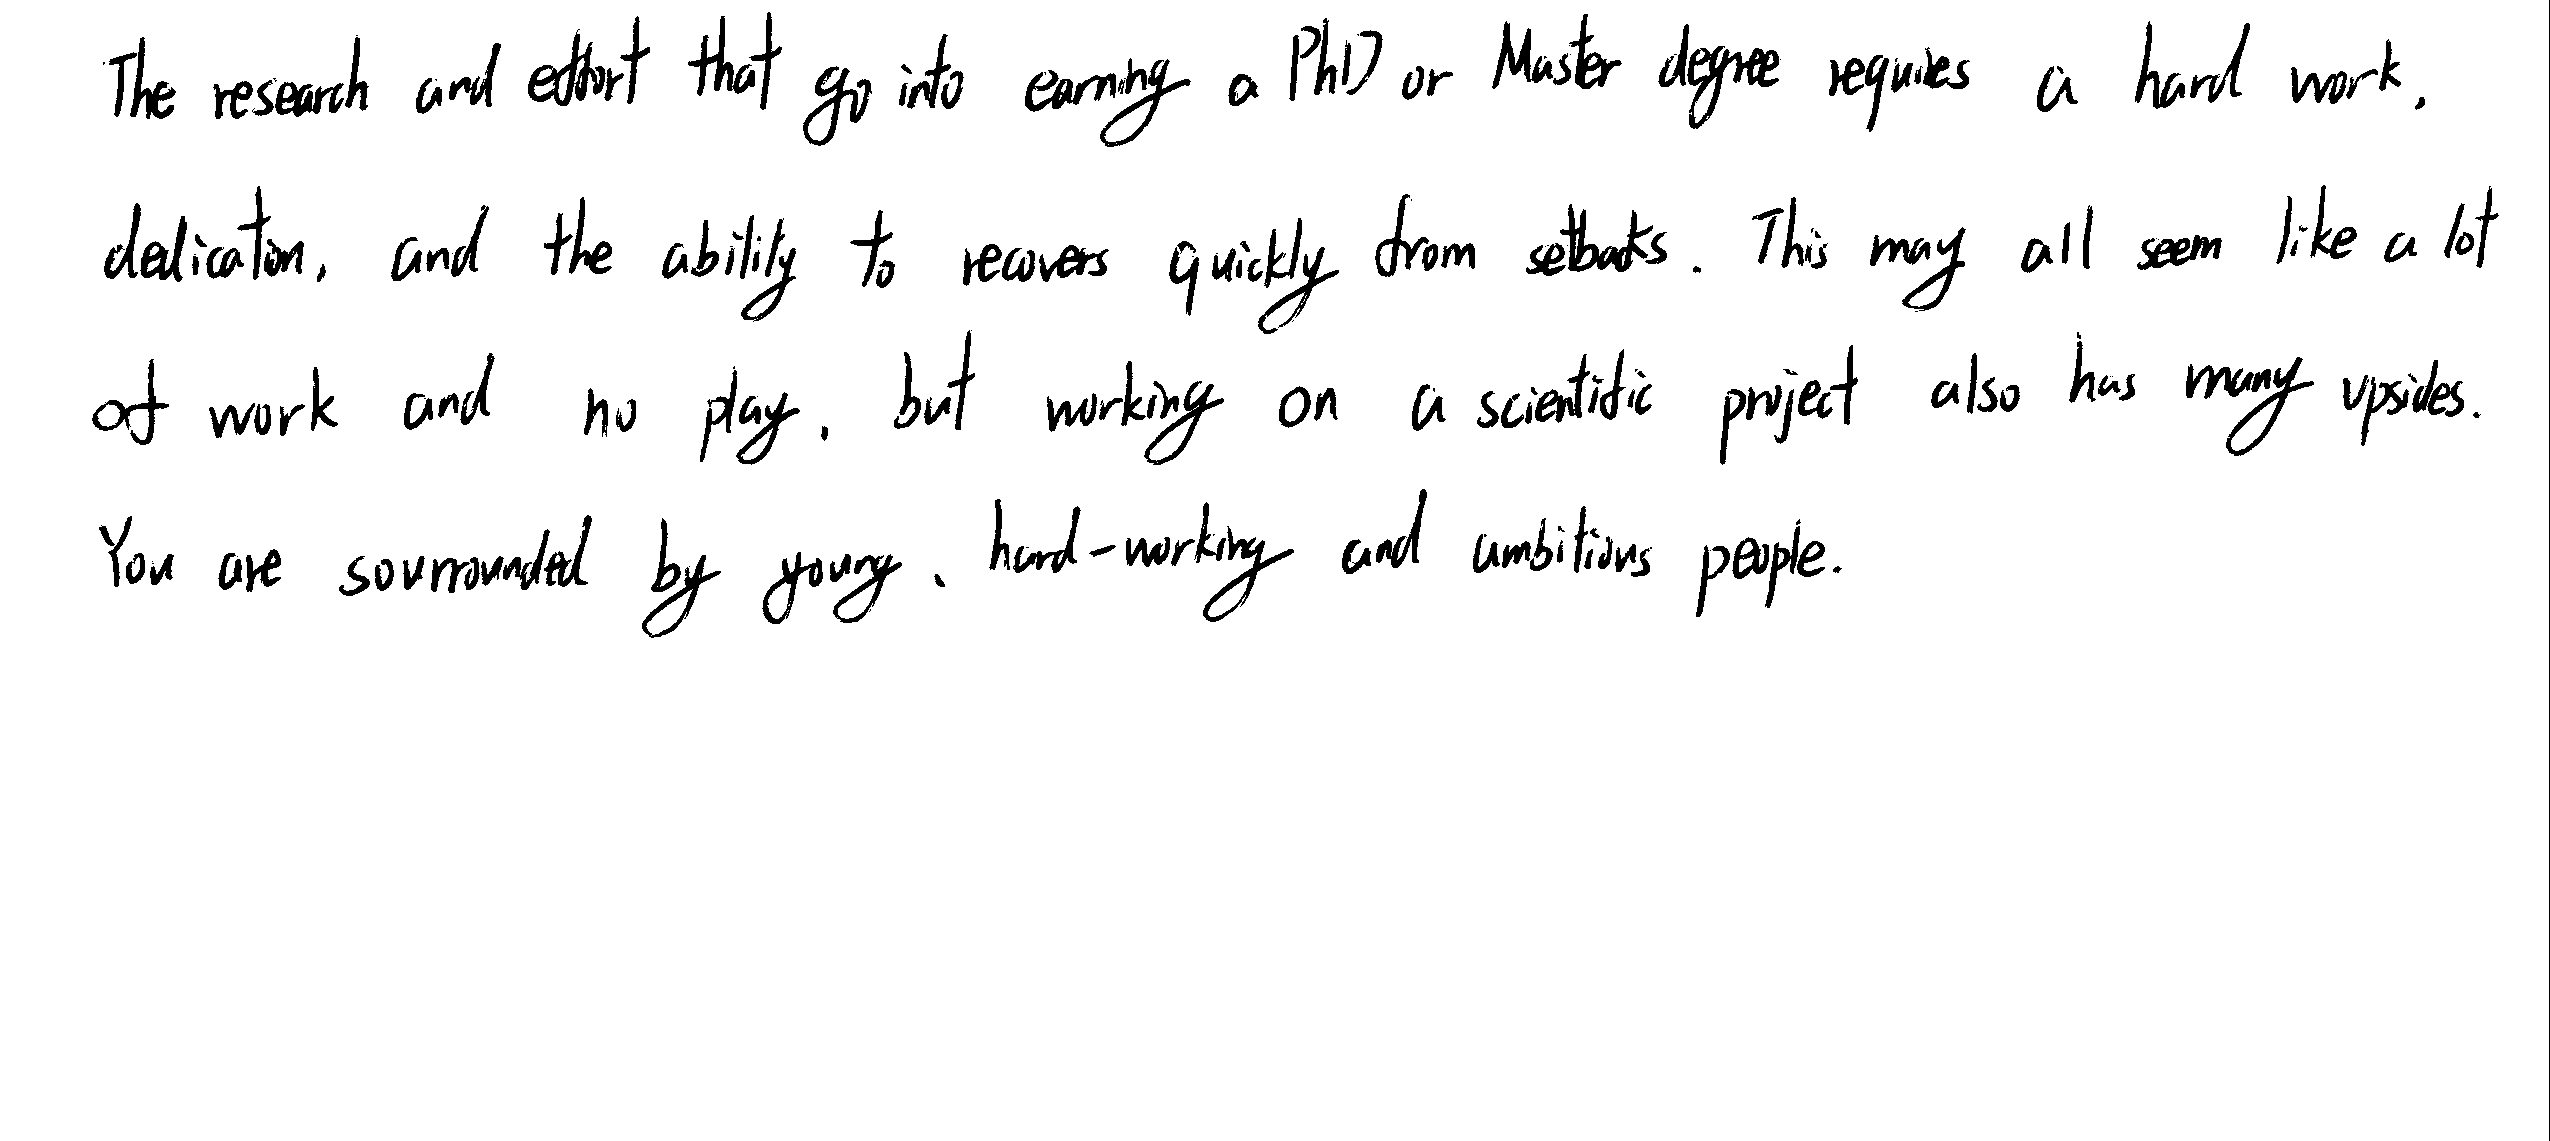 The research and effort that go into earning a PhD or Master degree requires a hard work,
dedication, and the ability to recovers quickly from setbacks. This may all seem like a lot
of work and no play, but working on a scientific project also has many upsides.
You are sourrounded by young, hard-working and ambitious people.